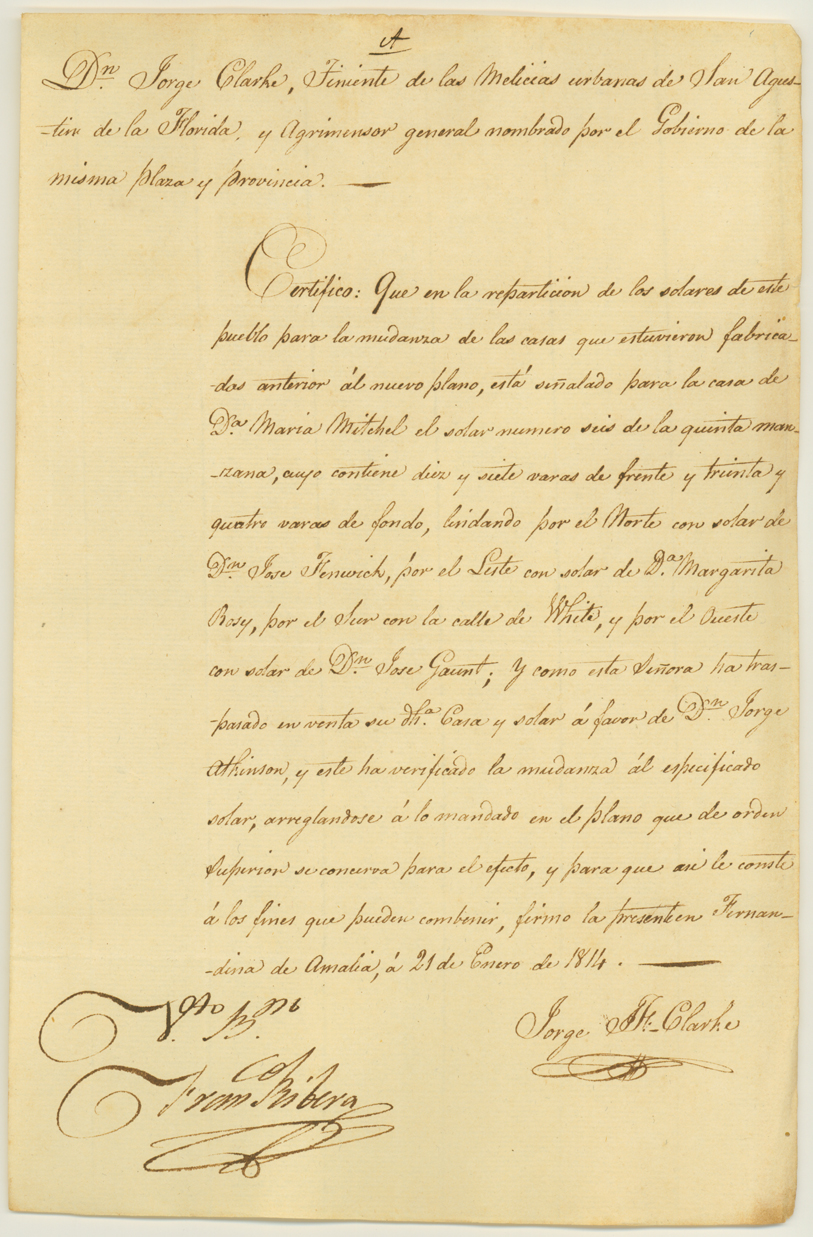 A
Dn. Jorge Clarke, Tiniente de las Melicias urbanas de San Agus-
-tin de la Florida, y Agrimensor general nombrado por el Gobierno de la
misma plaza y provincia. —
Certifico: Que en la reparticion de los solares de este
pueblo para la mudanza de las casas que estuvieron fabrica-
-das anterior ál nuevo plano, está señalado para la casa de
Da. Maria Mitchel el solar numero seis de la quinta man-
-zana, cuyo contiene diez y siete varas de frente y treinta y
quatro varas de fondo, lindando por el Norte con solar de
Dn. Jose Fenwick, por el Leste con solar de Da. Margarita
Rosy, por el Sur con la calle de White, y por el Oueste
con solar de Dn. Jose Gaunt; Y como esta Señora ha tras-
-pasado en venta su dha. Casa y solar á favor de Dn. Jorge
Atkinson, y este ha verificado la mudanza ál especificado
solar, arreglandose á lo mandado en el plano que de orden
Superior se concerva para el efecto, y para que asi le conste
á los fines que pueden combenir, firmo la presente en Fernan-
-dina de Amalia, á 21 de Enero de 1814. —
Jorge J. F. Clarke
Vto. Bno.
Franco Ribera